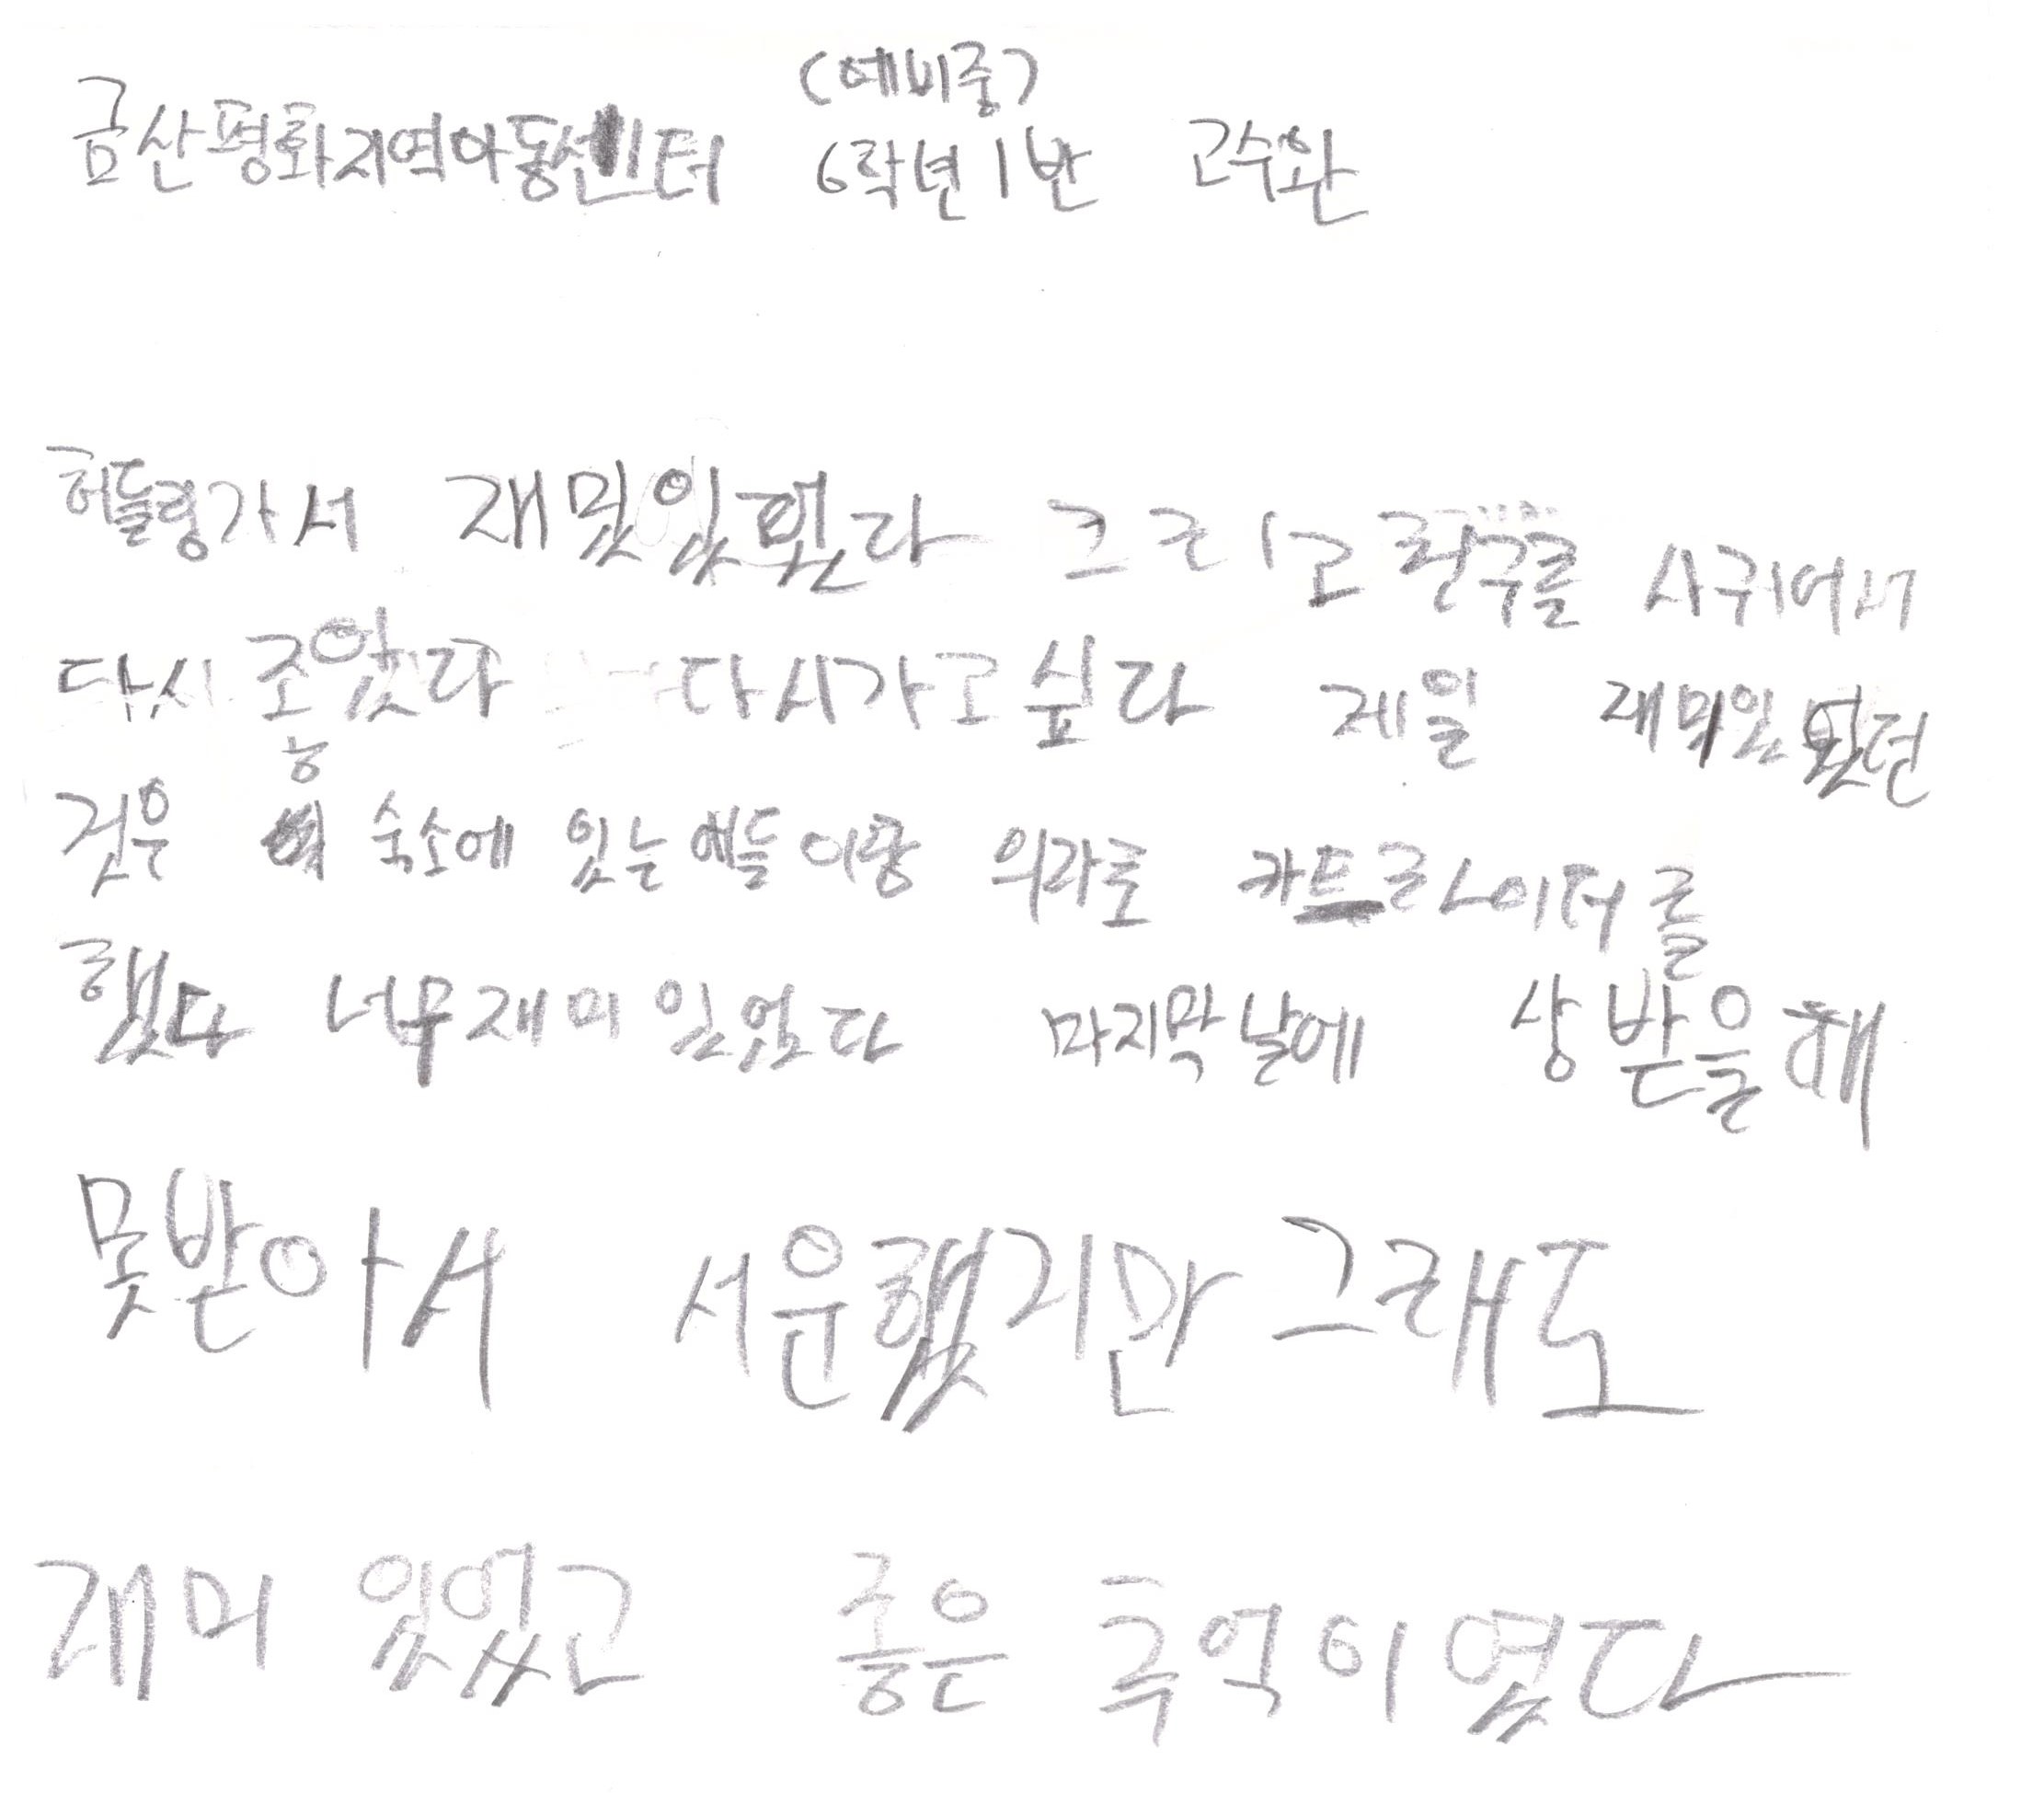 (예비중)
금산평화지역아동센터 6학년1반 고수완
허들링가서 재밌있었다 그리고 친구를 사귀어서
다시 좋았다 다시가고싶다 제일 재미있었던
것은 숙소에 있는 애들이랑 카트라이더를
했다 너무재미있었다 마지막날에 상 받을때
못받아서 서운했지만 그래도
재미있었고 좋은 추억이였다